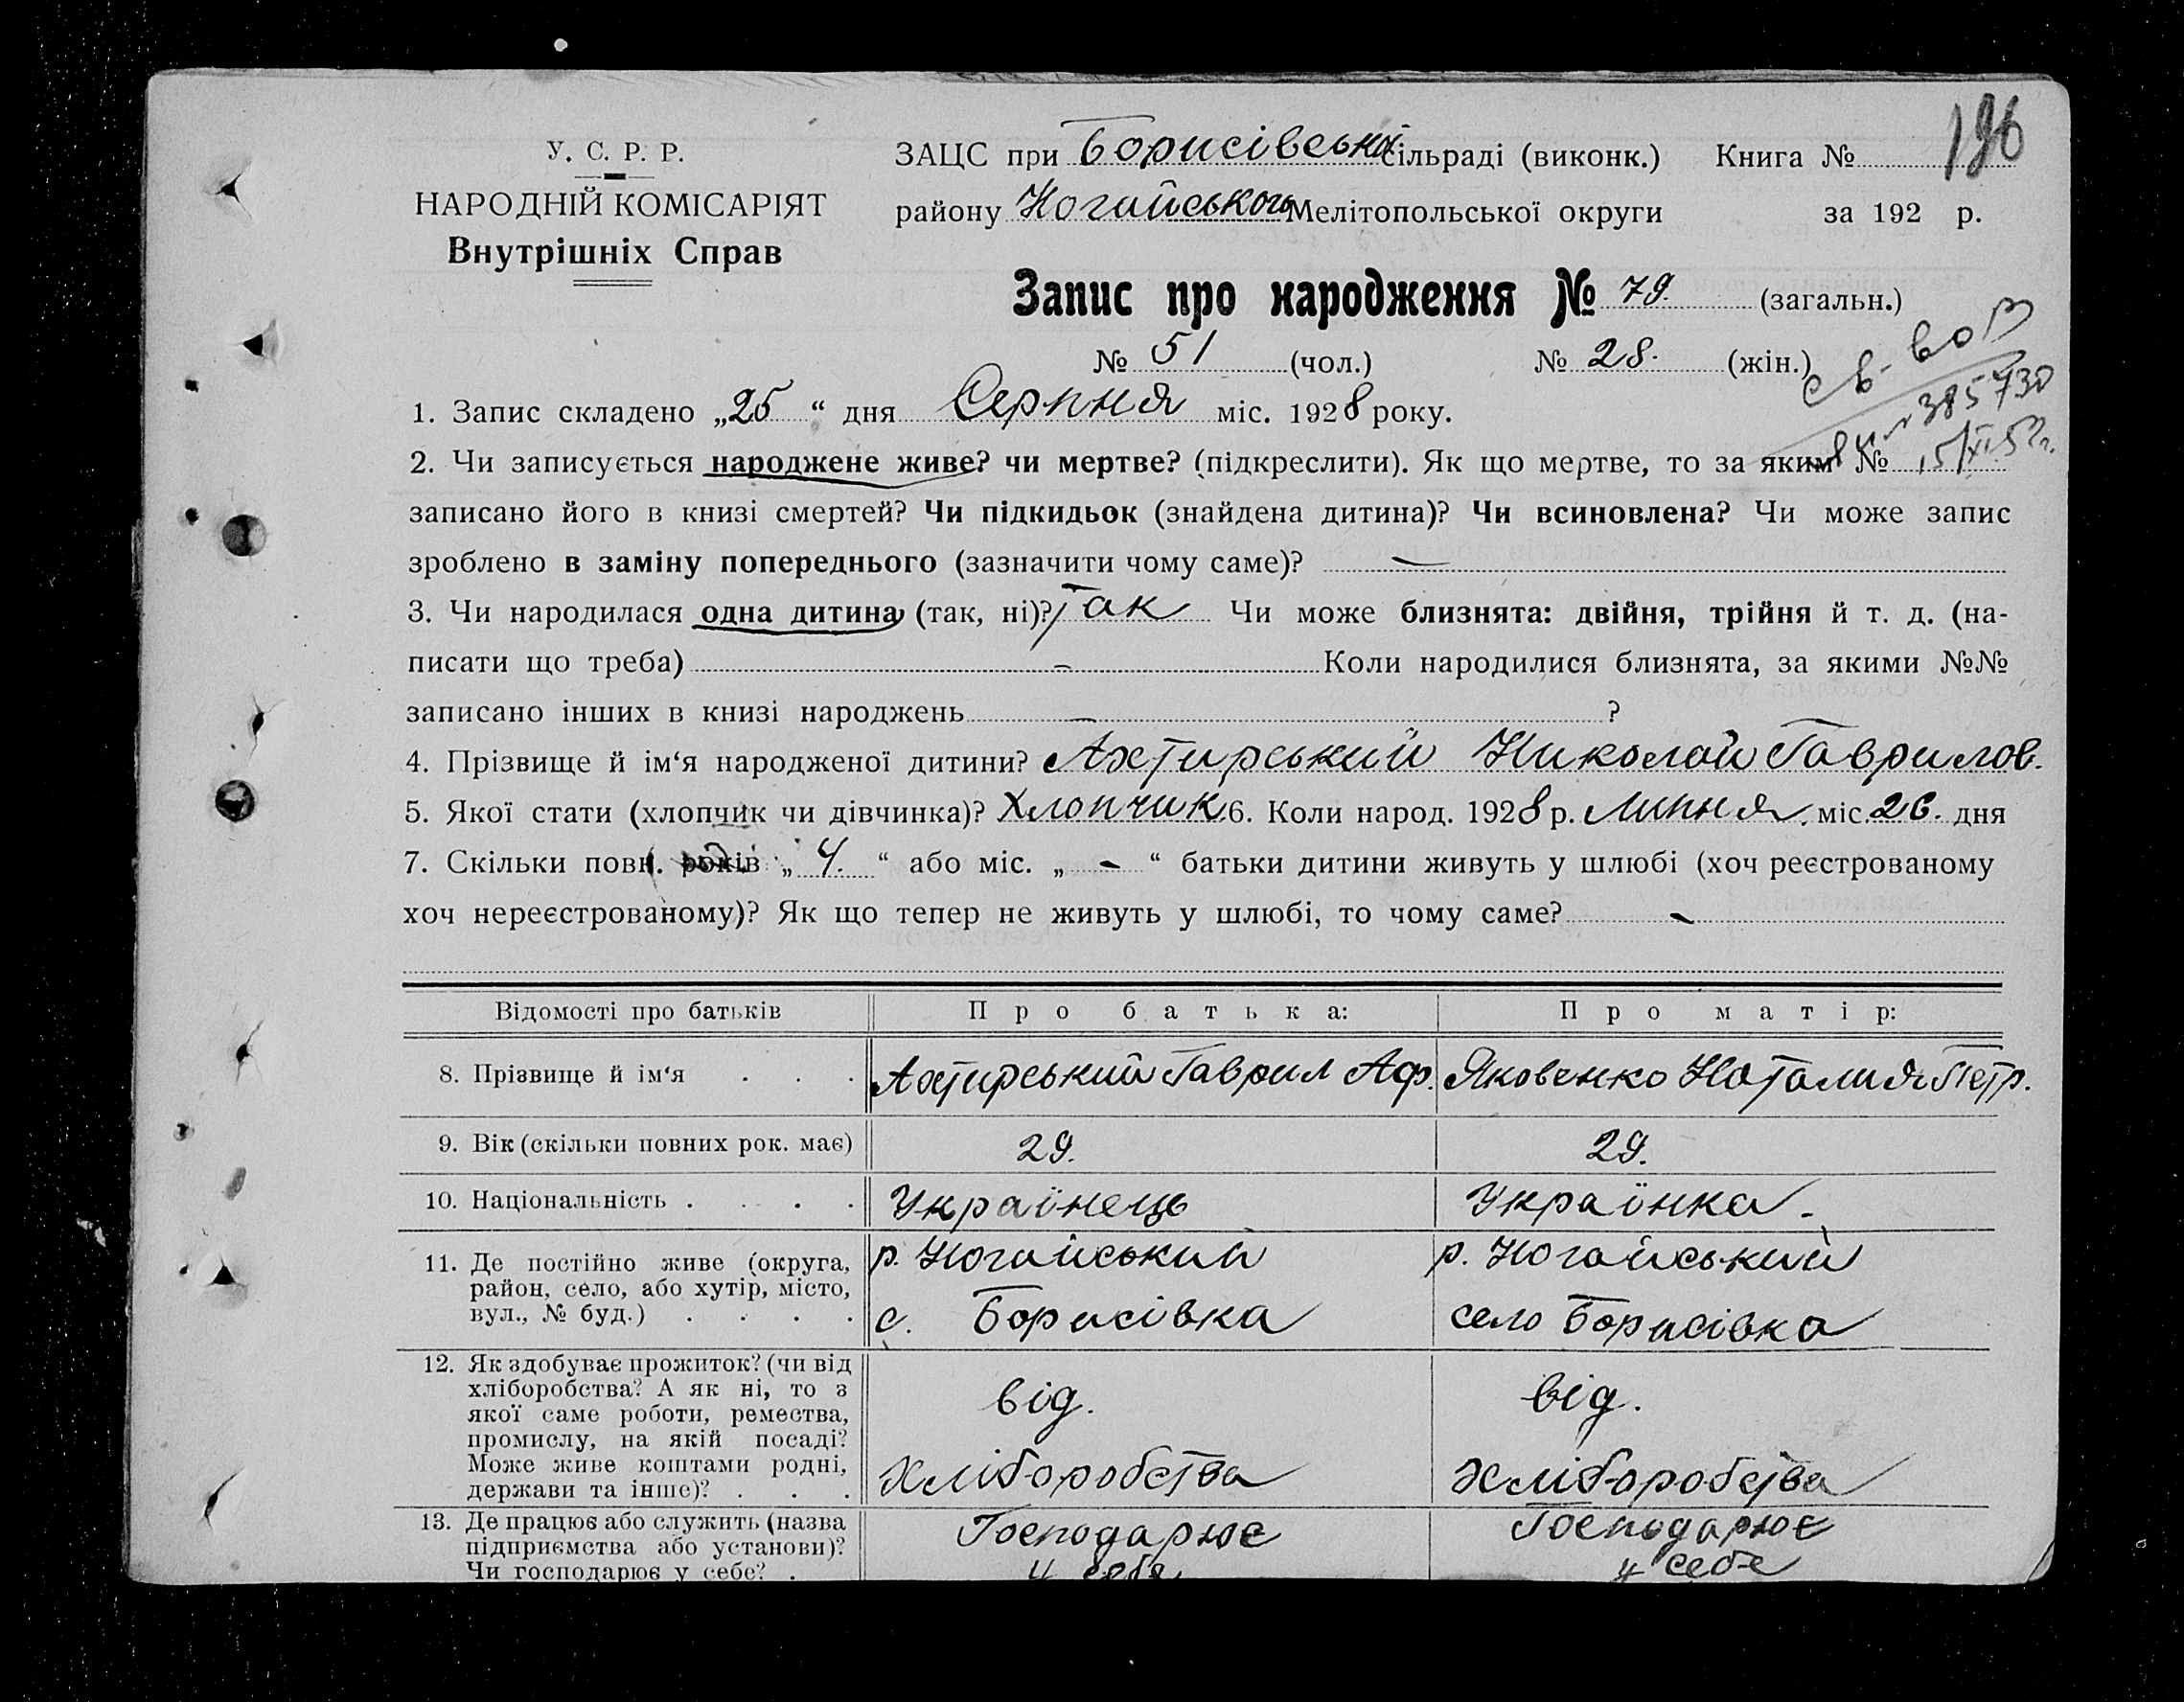 196
У. С. Р. Р.
НАРОДНІЙ КОМІСАРІЯТ
Внутрішніх Справ
ЗАЦС при Борисівській сільраді (виконк.) Книга №
району Ногайського Мелітопольської округи за 192 р.
Запис про народження № 79. (загальн.)
№ 51 (чол.) № 28. (жін.)
св-во
385730
1. Запис складено „25“ дня Серпня міс. 1928 року.
2. Чи записується народжене живе? чи мертве? (підкреслити). Як що мертве, то за яким №
записано його в книзі смертей? Чи підкидьок (знайдена дитина)? Чи всиновлена? Чи може запис
зроблено в заміну попереднього (зазначити чому саме)? —
3. Чи народилася одна дитина (так, ні)? Так Чи може близнята: двійня, трійня й т. д. (на-
писати що треба) — Коли народилися близнята, за якими №№
записано інших в книзі народжень — ?
4. Прізвище й ім‘я народженої дитини? Ахтирський Николай Гаврилов.
5. Якої стати (хлопчик чи дівчинка)? Хлопчик 6. Коли народ. 1928 р. Липня. міс. 26. дня
7. Скільки повн. років „4.“ або міс. „-“ батьки дитини живуть у шлюбі (хоч реєстрованому
хоч нереєстрованому)? Як що тепер не живуть у шлюбі, то чому саме? -
Відомості про батьків Про батька: Про матір:
8. Прізвище й ім‘я . . . Ахтирський Гаврил Аф. Яковенко Наталия Петр.
9. Вік (скільки повних рок. має) 29. 29.
10. Національність . . . . Українець Українка.
11. Де постійно живе (округа, р. Ногайський р. Ногайський
район, село, або хутір, місто,
вул., № буд.) . . . . с. Борисівка село Борисівка
12. Як здобуває прожиток? (чи від
хліборобства? А як ні, то з
якої саме роботи, ремества, від. від.
промислу, на якій посаді?
Може живе коштами родні, хліборобства хліборобства
держави та інше)? . . .
13. Де працює або служить (назва Господарює Господарює
підприємства або установи)?
Чи господарює у себе? . у себе у себе